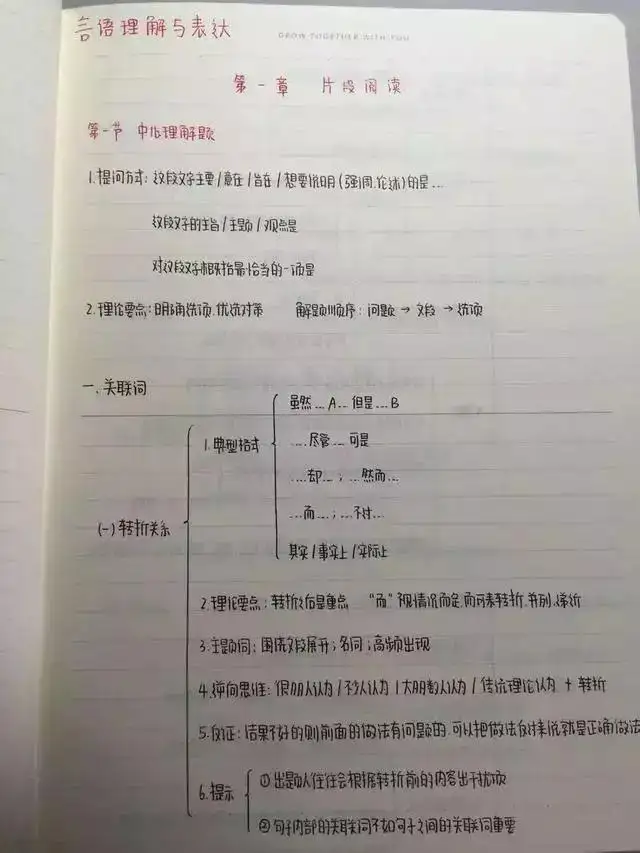 言语理解与表达
GROW TOGETHER WITH YOU
第一章 片段阅读
第一节 中心理解题
1.提问方式: 这段文字主要/意在/旨在/想要说明(强调.论述)的是...
这段文字的主旨/主题/观点是
对这段文字概括最恰当的一项是
2.理论要点:明确选项.优选对策 解题顺序: 问题→文段→选项
一.关联词
(一)转折关系
1.典型格式
虽然...A...但是...B
....尽管....可是
....却....;....然而...
...而...;...不过...
其实/事实上/实际上
2.理论要点:转折之后是重点 "而"视情况而定,而可表转折.并列.递进
3.主题词: 围绕文段展开;名词;高频出现
4.逆向思维: 很多人认为/不少人认为/大多数人认为/传统理论认为 + 转折
5.反证: 结果不好的则前面的做法有问题的.可以把做法反过来说就是正确做法
6.提示
①出题人往往会根据转折前的内容出干扰项
②句子内部的关联词不如句子之间的关联词重要